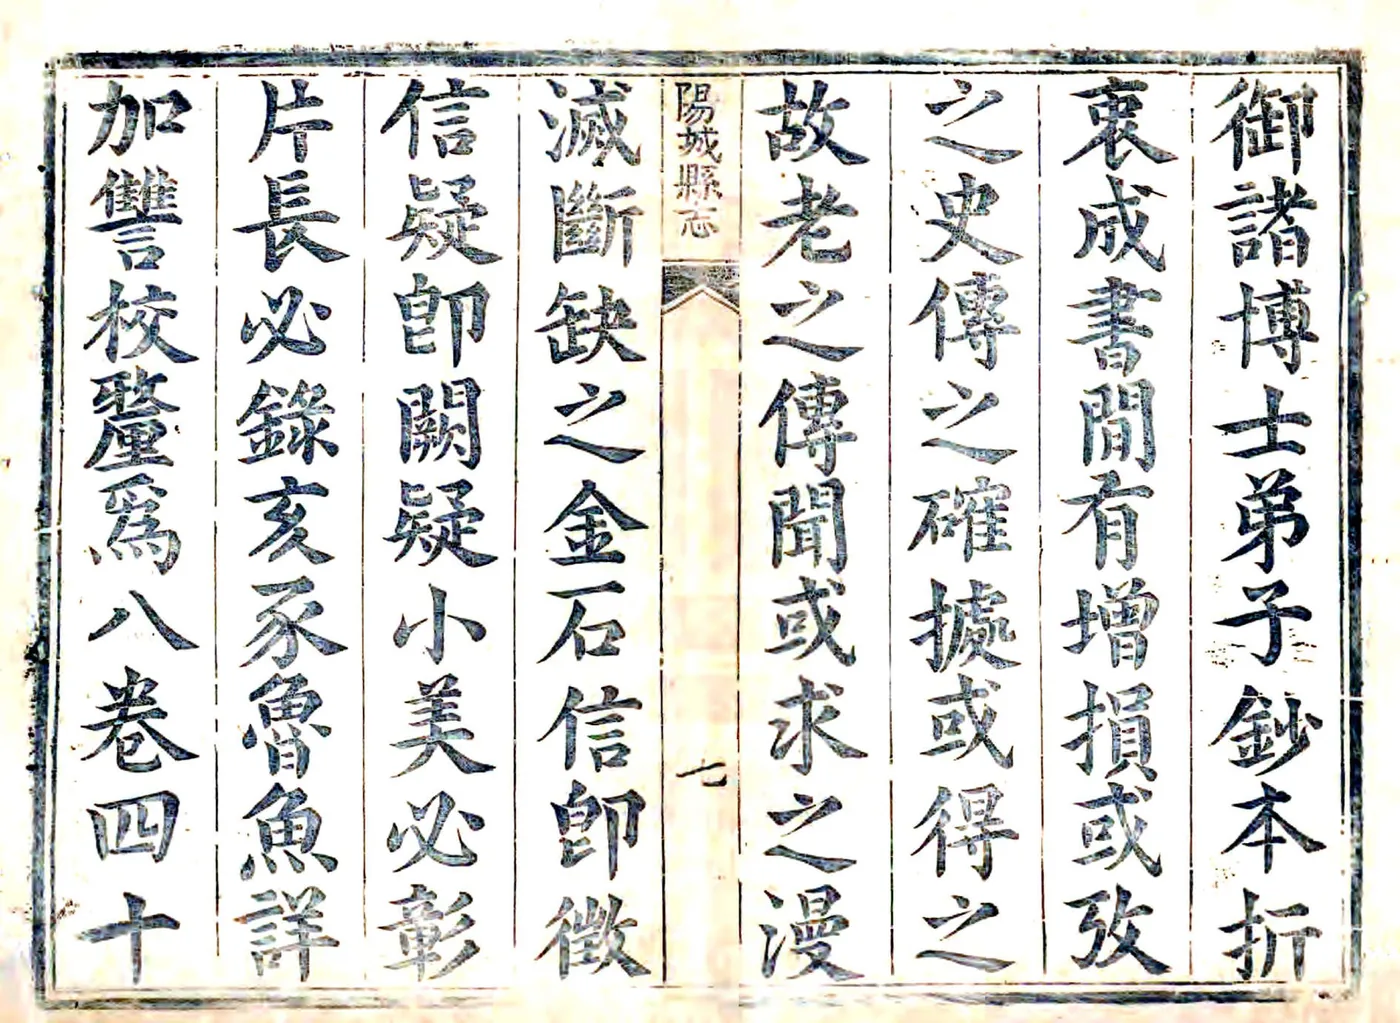 御諸博士弟子鈔本折
衷成書閒有增損或攷
之史傳之確據或得之
故老之傳聞或求之漫
陽城縣志
七
滅斷缺之金石信卽徵
信疑卽闕疑小美必彰
片長必錄亥豕魯魚詳
加讐校釐爲八卷四十